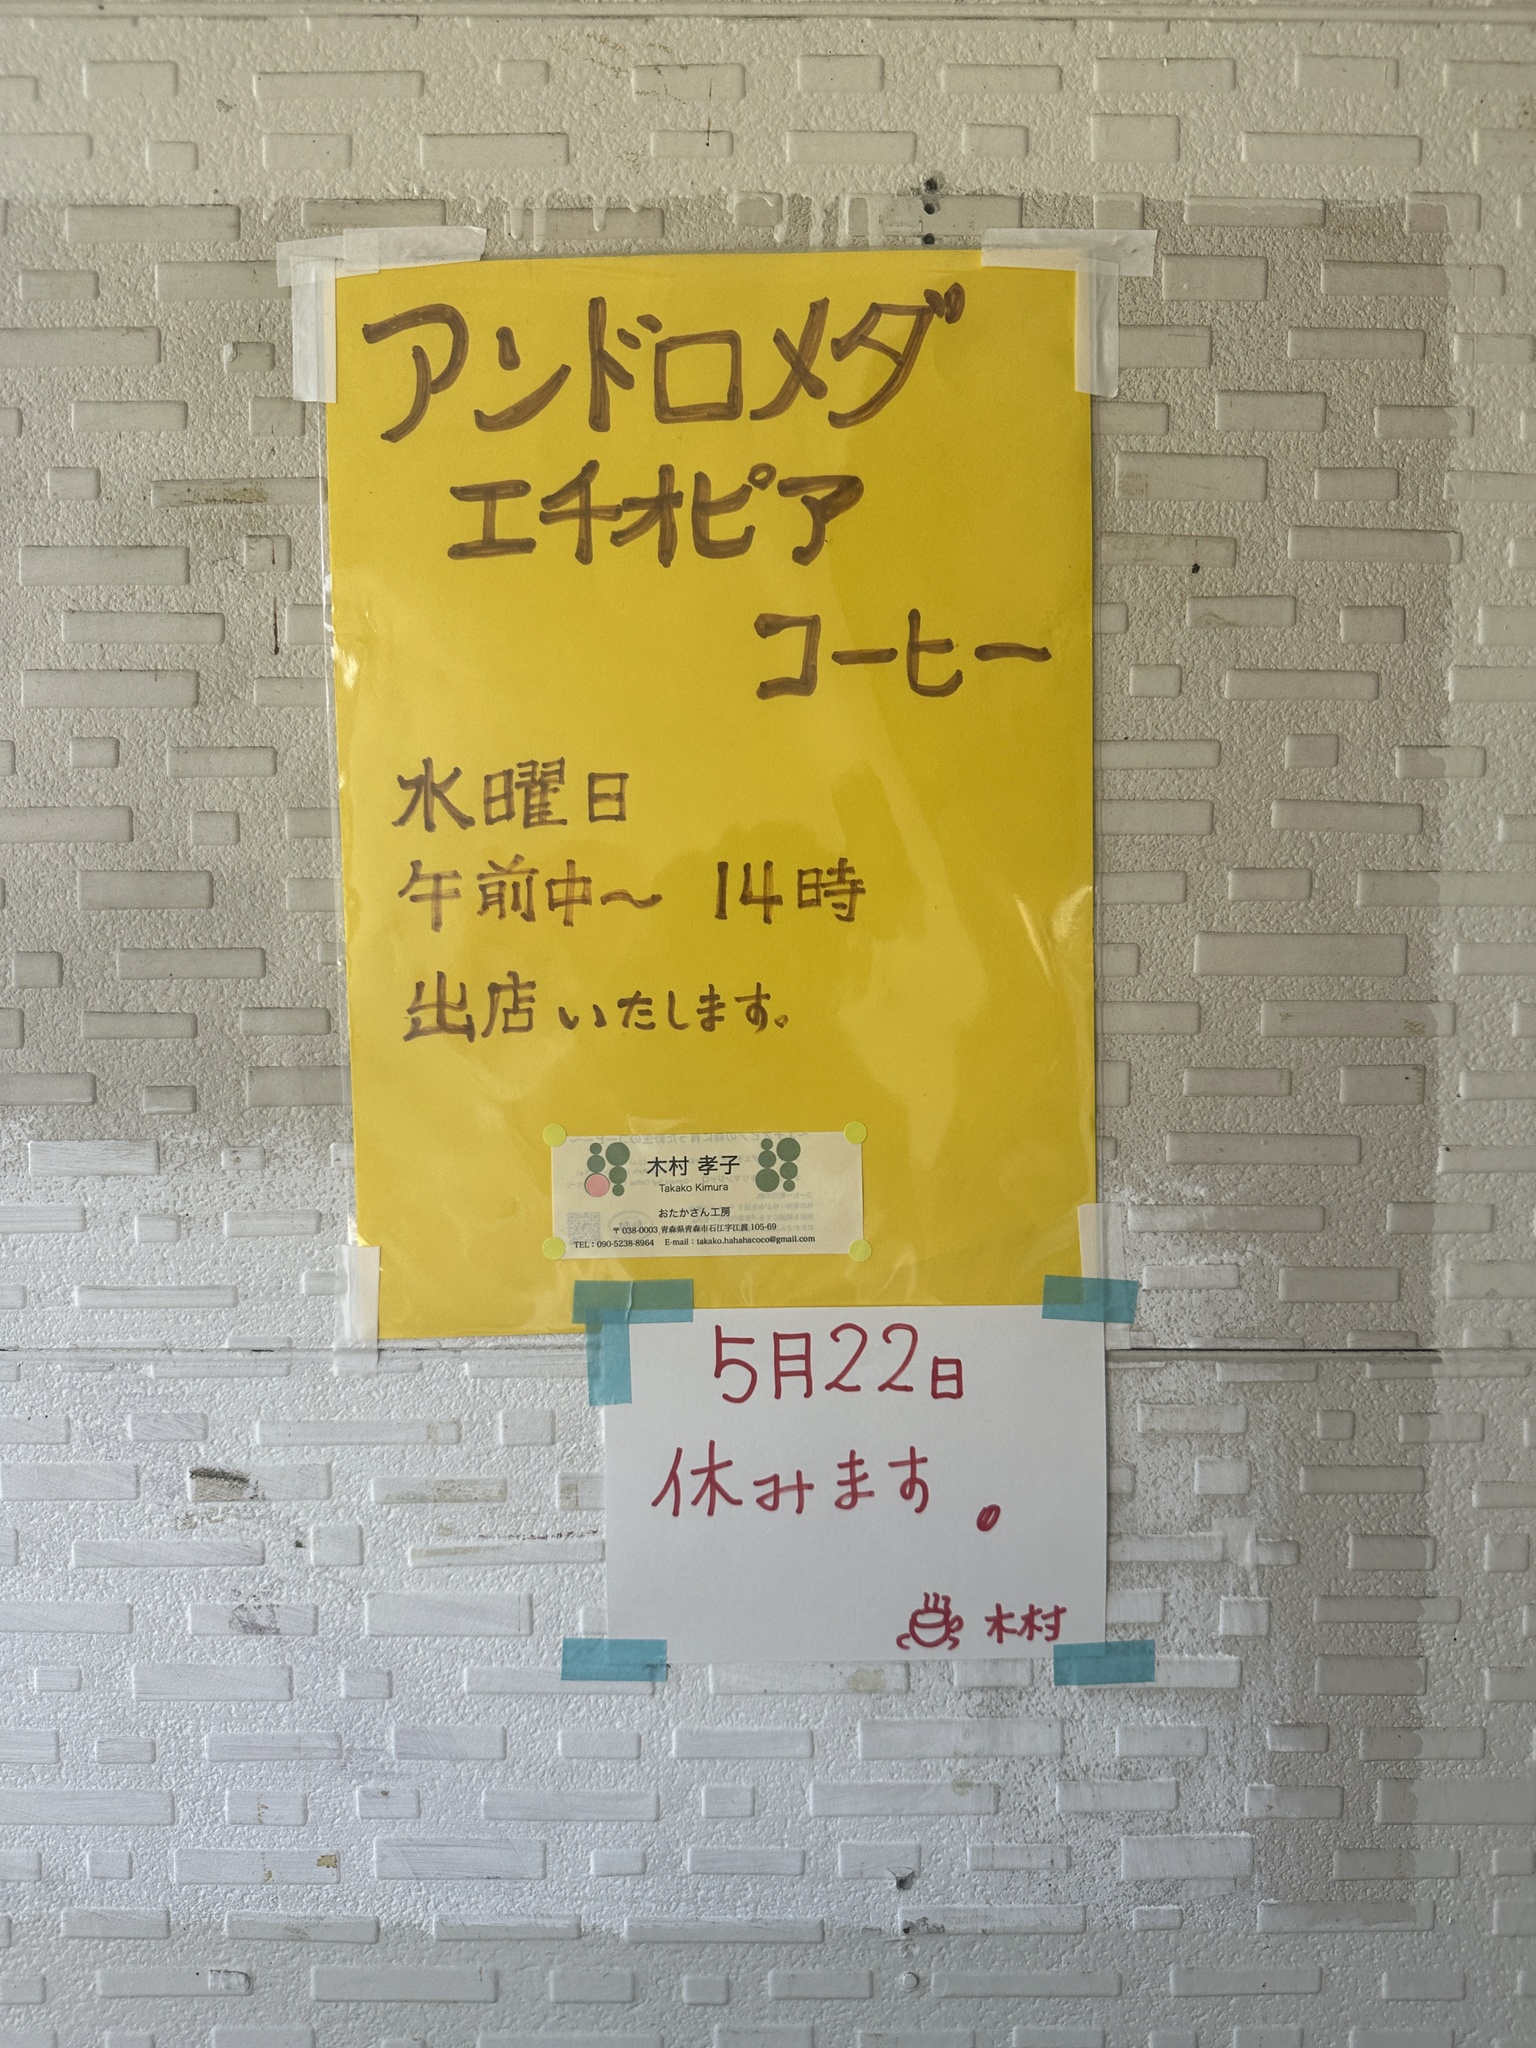 アンドロメダ
エチオピア
コーヒー
水曜日
午前中〜 14時
出店いたします。
木村 孝子
Takako Kimura
おたかさん工房
〒038-0003 青森県青森市石江字江渡 105-69
TEL：090-5238-8964 E-mail：takako.hahahacoco@gmail.com
5月22日
休みます。
木村